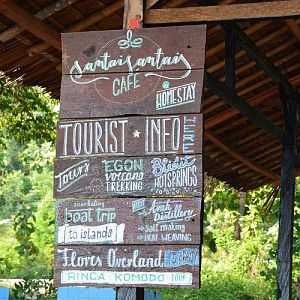 santai santai
CAFE
& HOMESTAY
TOURIST * INFO
Tours
EGON
volcano
TREKKING
Blidit
HOTSPRINGS
snorkeling
boat trip
to islands
Arak Distillery
Salt making
IKAT WEAVING
Flores Overland
RINCA - KOMODO tour